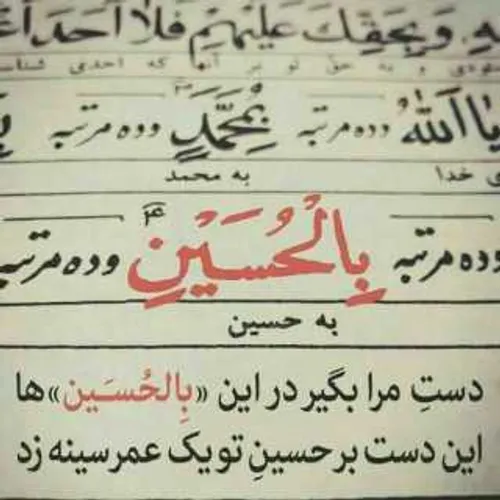 وَبِحَقِّكَ عَلَيْهِمْ فَلاٰ اَحَدَ
و به حق تو بر آنها که احدی
یٰا اَللّٰهُ وده مرتبه بِمُحَمَّدٍ وده مرتبه
خدا به محمد
وده مرتبه بِالْحُسَیْنِ وده مرتبه
به حسین
دستِ مرا بگیر در این «بِالحُسَین»ها
این دست بر حسینِ تو یک عمر سینه زد